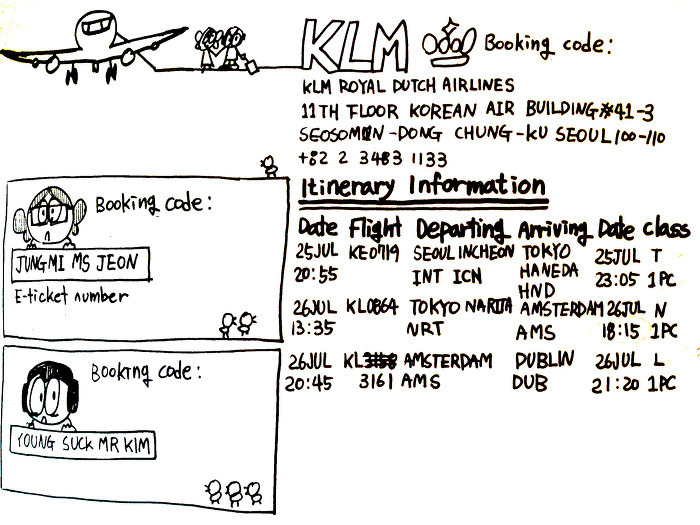 KLM Booking code:
KLM ROYAL DUTCH AIRLINES
11TH FLOOR KOREAN AIR BUILDING #41-3
SEOSOMUN-DONG CHUNG-KU SEOUL 100-110
+82 2 3483 1133
Itinerary Information
Date Flight Departing Arriving Date class
25JUL KE0719 SEOUL INCHEON TOKYO 25JUL T
20:55 INT ICN HANEDA 23:05 1PC
HND
26JUL KL0864 TOKYO NARITA AMSTERDAM 26JUL N
13:35 NRT AMS 18:15 1PC
26JUL KL AMSTERDAM DUBLIN 26JUL L
20:45 3161 AMS DUB 21:20 1PC
Booking code:
JUNGMI MS JEON
E-ticket number
Booking code:
YOUNG SUCK MR KIM